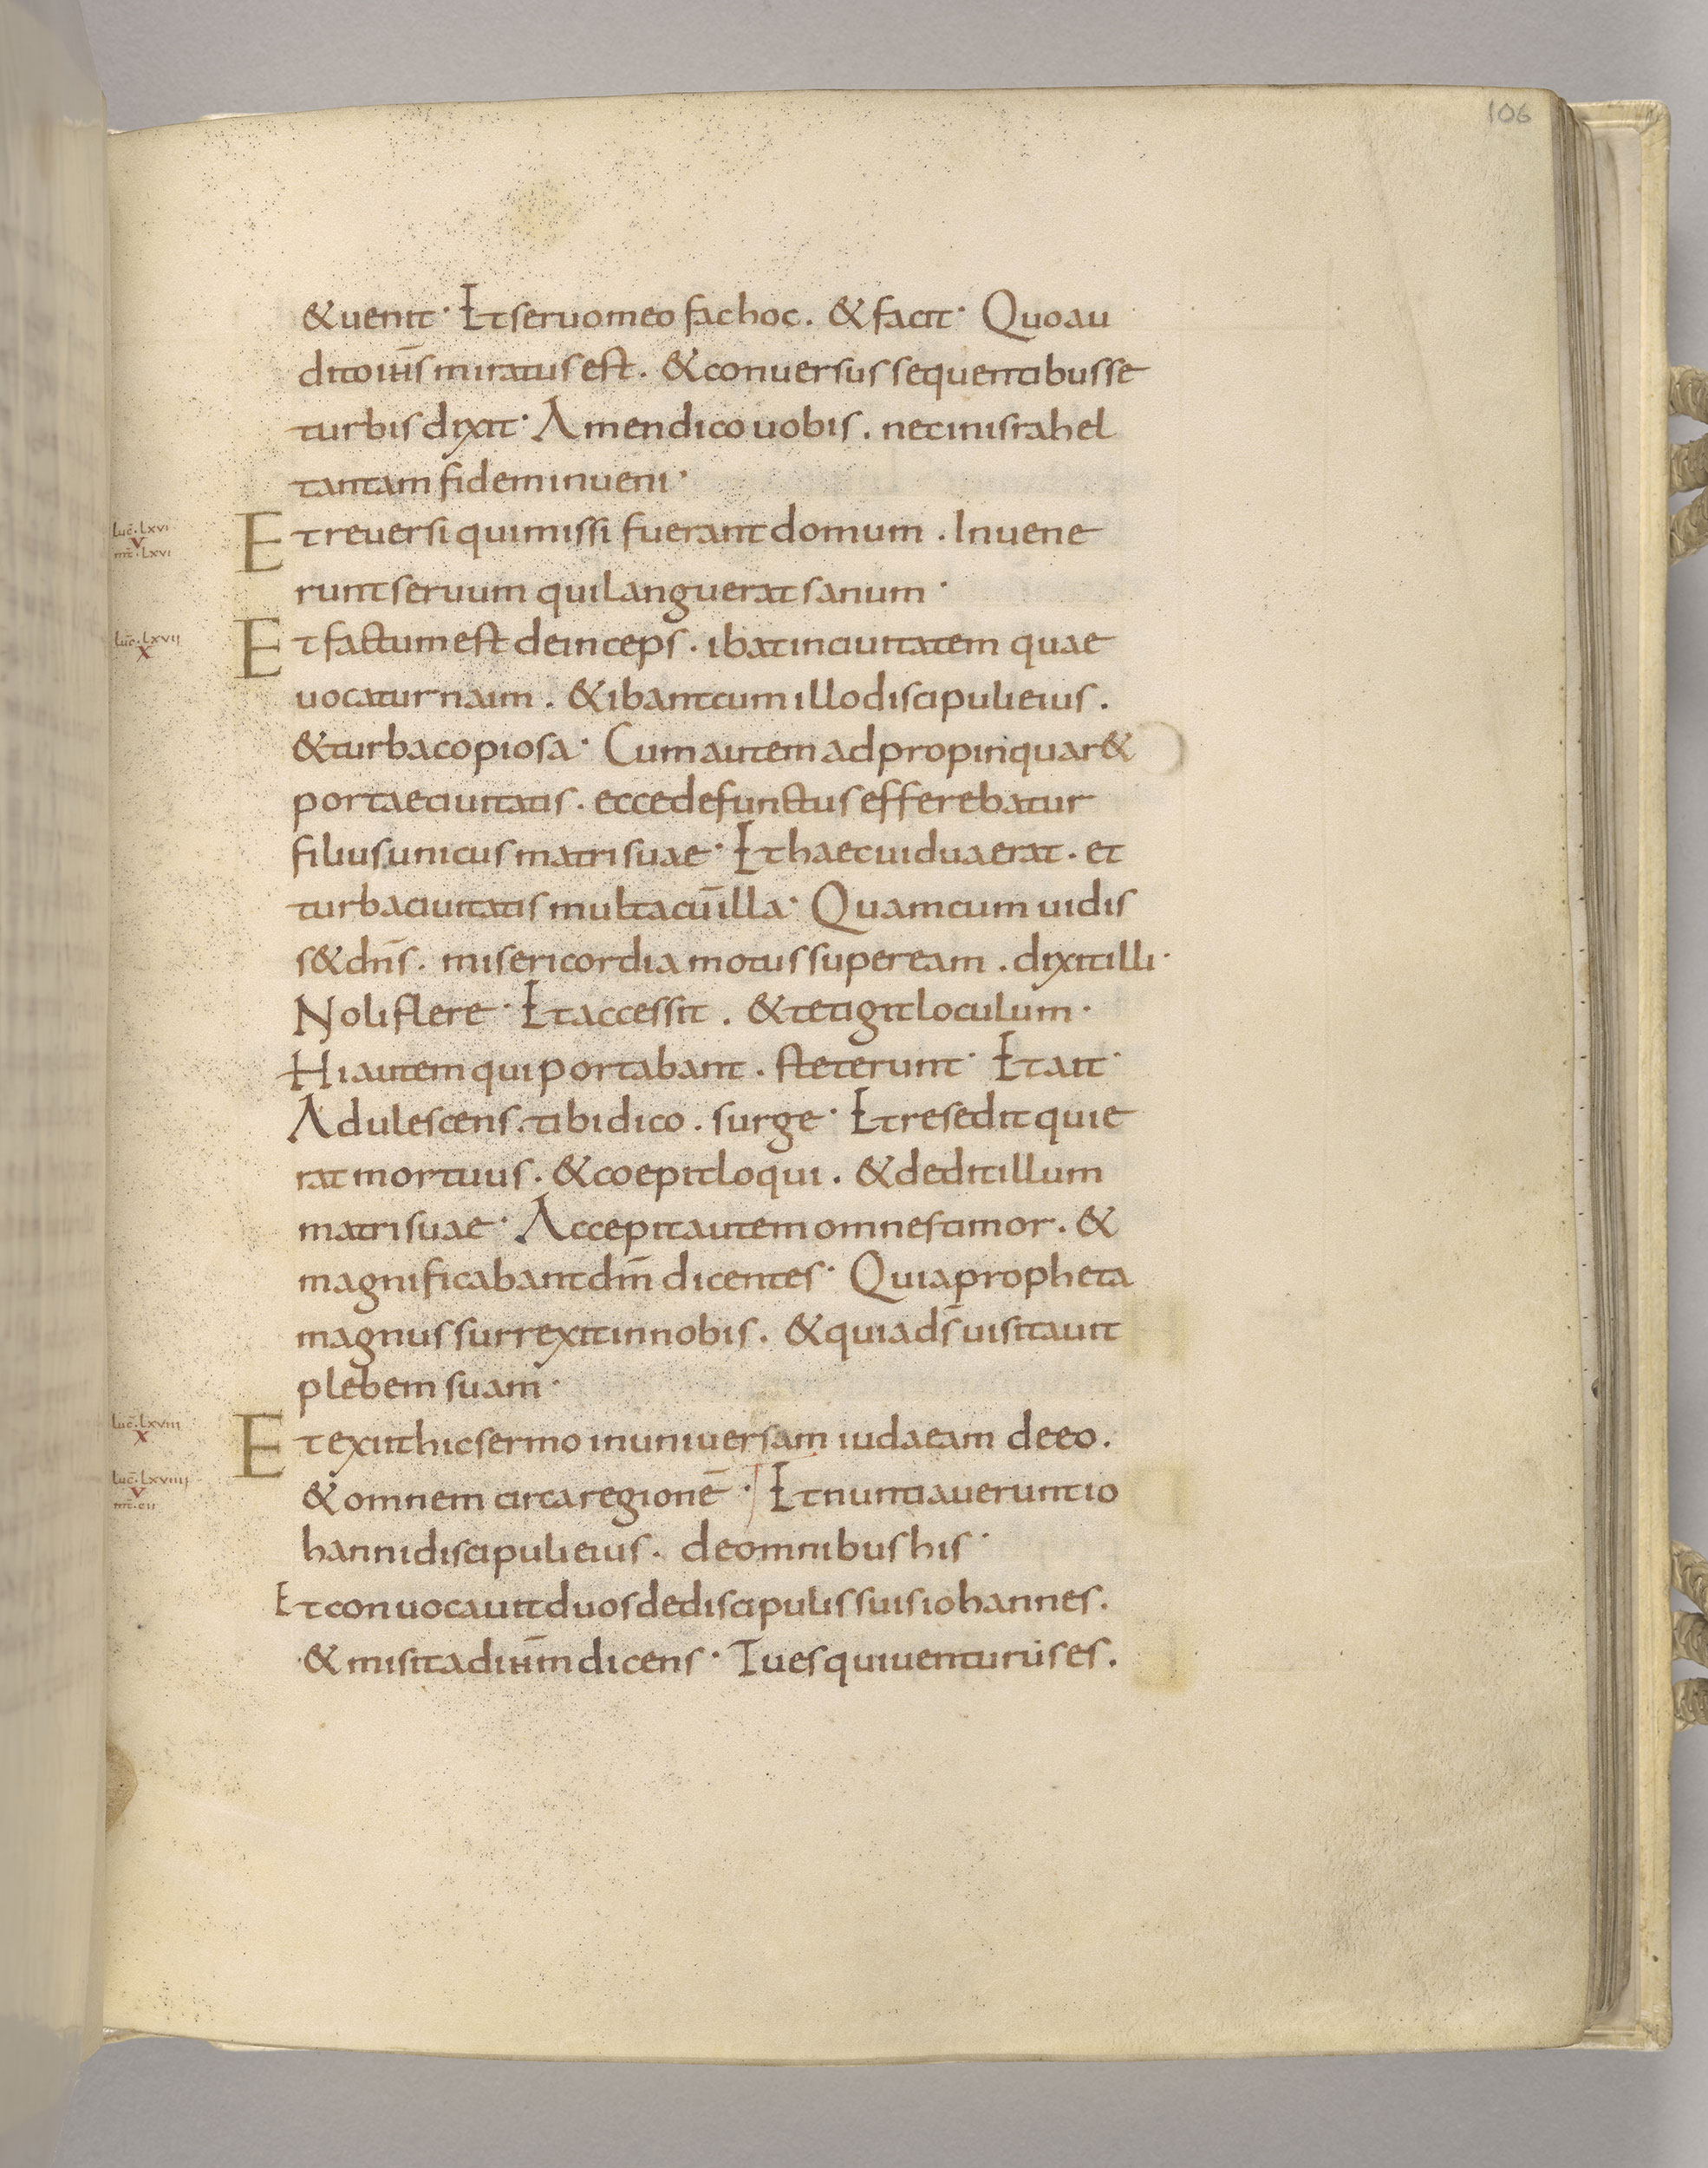 106
& uenit· Et seruo meo fac hoc. & facit· Quo au
dito ih̄s miratus est. & conuersus sequentibus se
turbis dixit· Amen dico uobis. nec in israhel
tantam fidem inueni·
Luc̄·Lxvi
V
mt̄·Lxvi
Et reuersi qui missi fuerant domum. Inuene
runt seruum qui languerat sanum·
Luc̄·Lxvii
X
Et factum est deinceps. ibat in ciuitatem quae
uocatur naim. & ibant cum illo discipuli eius.
& turba copiosa· Cum autem adpropinquar&
portae ciuitatis. ecce defunctus efferebatur
filius unicus matri suae· Et haec uidua erat. et
turba ciuitatis multa cū illa· Quam cum uidis
s& dn̄s. misericordia motus super eam. dixit illi·
Noli flere· Et accessit. & tetigit loculum·
Hi autem qui portabant. steterunt· Et ait·
Adulescens. tibi dico. surge· Et resedit qui e
rat mortuus. & coepit loqui. & dedit illum
matri suae· Accepit autem omnes timor. &
magnificabant dm̄ dicentes· Quia propheta
magnus surrexit in nobis. & quia ds̄ uisitauit
plebem suam·
Luc̄·Lxviii
X
Et exiit hic sermo in uniuersam iudaeam de eo.
Luc̄·Lxviiii
V
mt̄·cii
& omnem circa regionē· Et nuntiauerunt io
hanni discipuli eius. de omnibus his·
Et conuocauit duos de discipulis suis iohannes.
& misit ad ih̄m dicens· Tu es qui uenturus es.